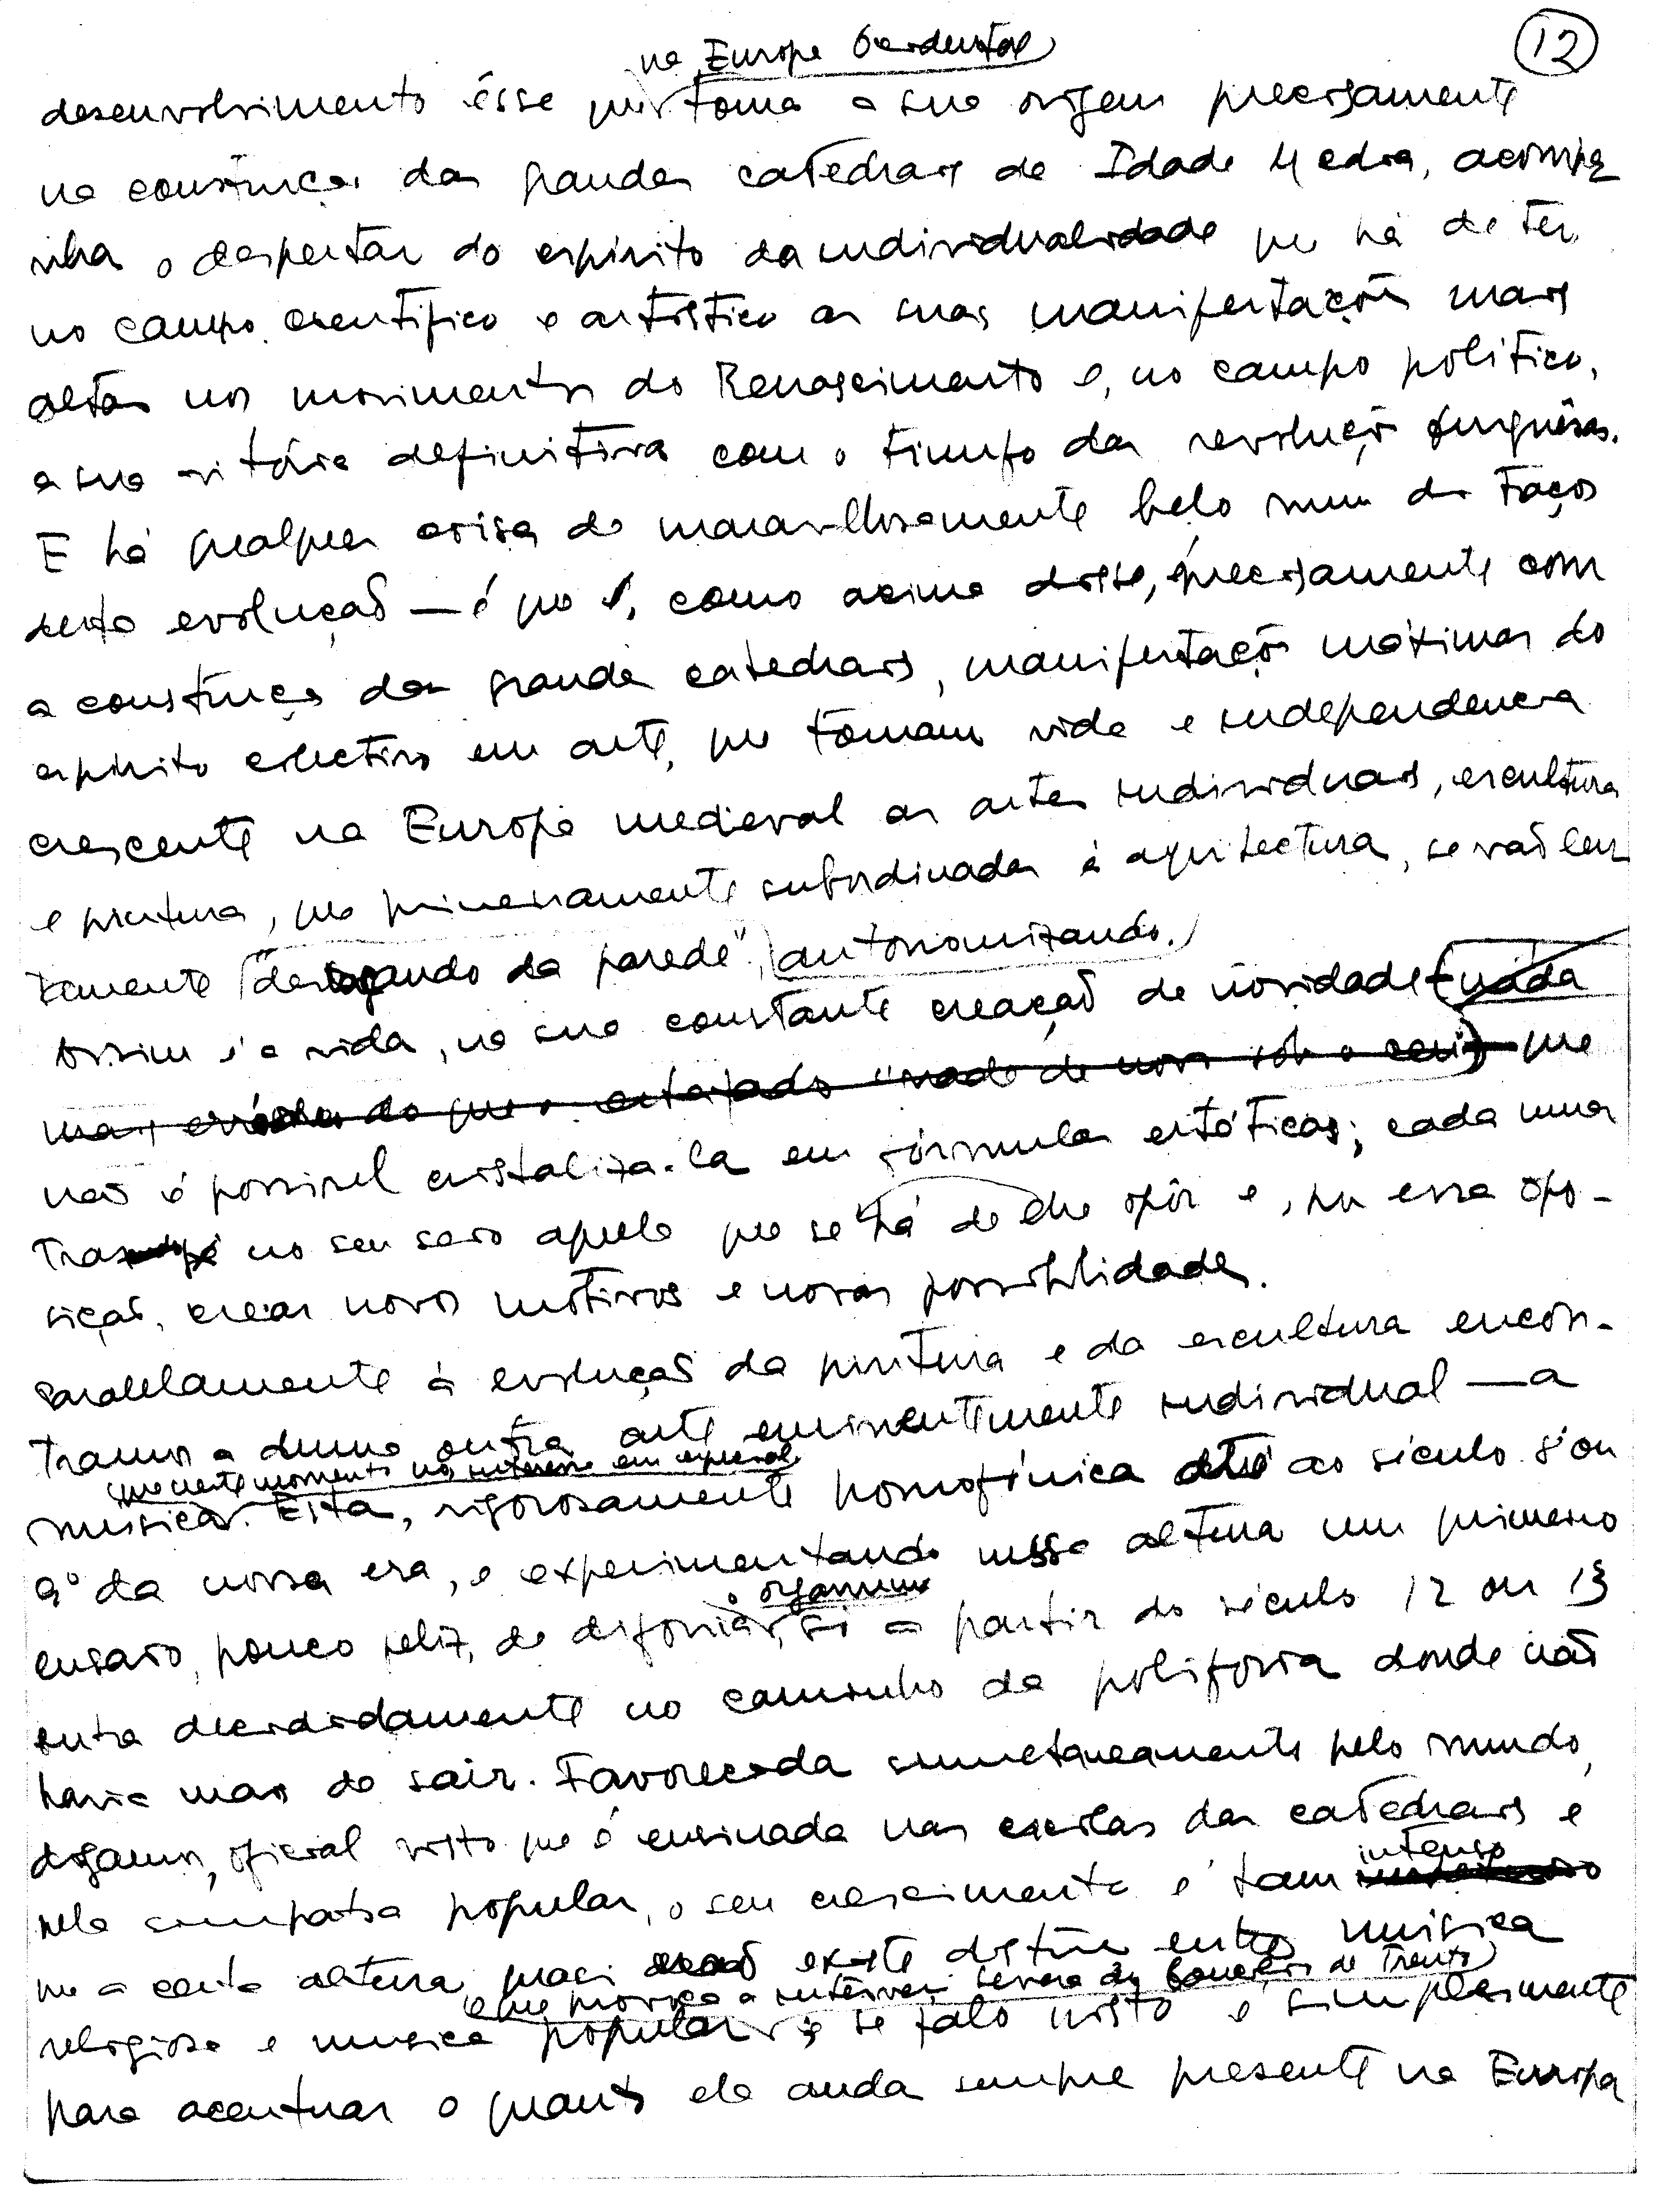 12
na Europa Ocidental
desenvolvimento êsse que toma a sua origem precisamente
na construção das grandes catedrais da Idade Media, acompa
nha o despertar do espirito da individualidade que há de ter,
no campo scientifico e artistico as suas manifestações mais
altas nos movimentos do Renascimento e, no campo politico,
a sua vitória definitiva com o triunfo das revoluções burguêsas.
E há qualquer coisa de maravilhosamente belo num dos traços
desta evolução — é que é, como acima disse, precisamente com
a construção das grandes catedrais, manifestações máximas do
espirito colectivo em arte, que tomam vida e independencia
crescente na Europa medieval as artes individuais, escultura
e pintura, que primeiramente subordinadas á arquitectura, se vão len
tamente "deslogando da parede", autonomizando.
Assim é a vida, na sua constante creação de novidade (nada
mais errado do que o estafado "nada de novo sob o ceu") que
não é possivel cristaliza-la em fórmulas estáticas; cada uma
traz no seu seio aquela que se lhe há de opôr e, por essa opo-
sição, crear novos motivos e novas possibilidades.
Paralelamente á evolução da pintura e da escultura encon-
tramos a duma outra arte eminentemente individual — a
que neste momento nos interessa em especial
musica. Esta, rigorosamente homofónica até ao século 8º ou
9º da nossa era, e experimentando nessa altura um primeiro
o organum
ensaio, pouco feliz, de difonia, só a partir do século 12 ou 13
entra decididamente no caminho da polifonia donde não
havia mais de sair. Favorecida simultaneamente pelo mundo,
digamos, oficial visto que é ensinada nas escolas das catedrais e
intenso
pela simpatia popular, o seu crescimento é tam
que a certa altura quasi não existe distinção entre musica
e que provoca a intervenção severa do Concilio de Trento
religiosa e musica popular; e se falo nisto é simplesmente
para acentuar o quanto ela anda sempre presente na Europa